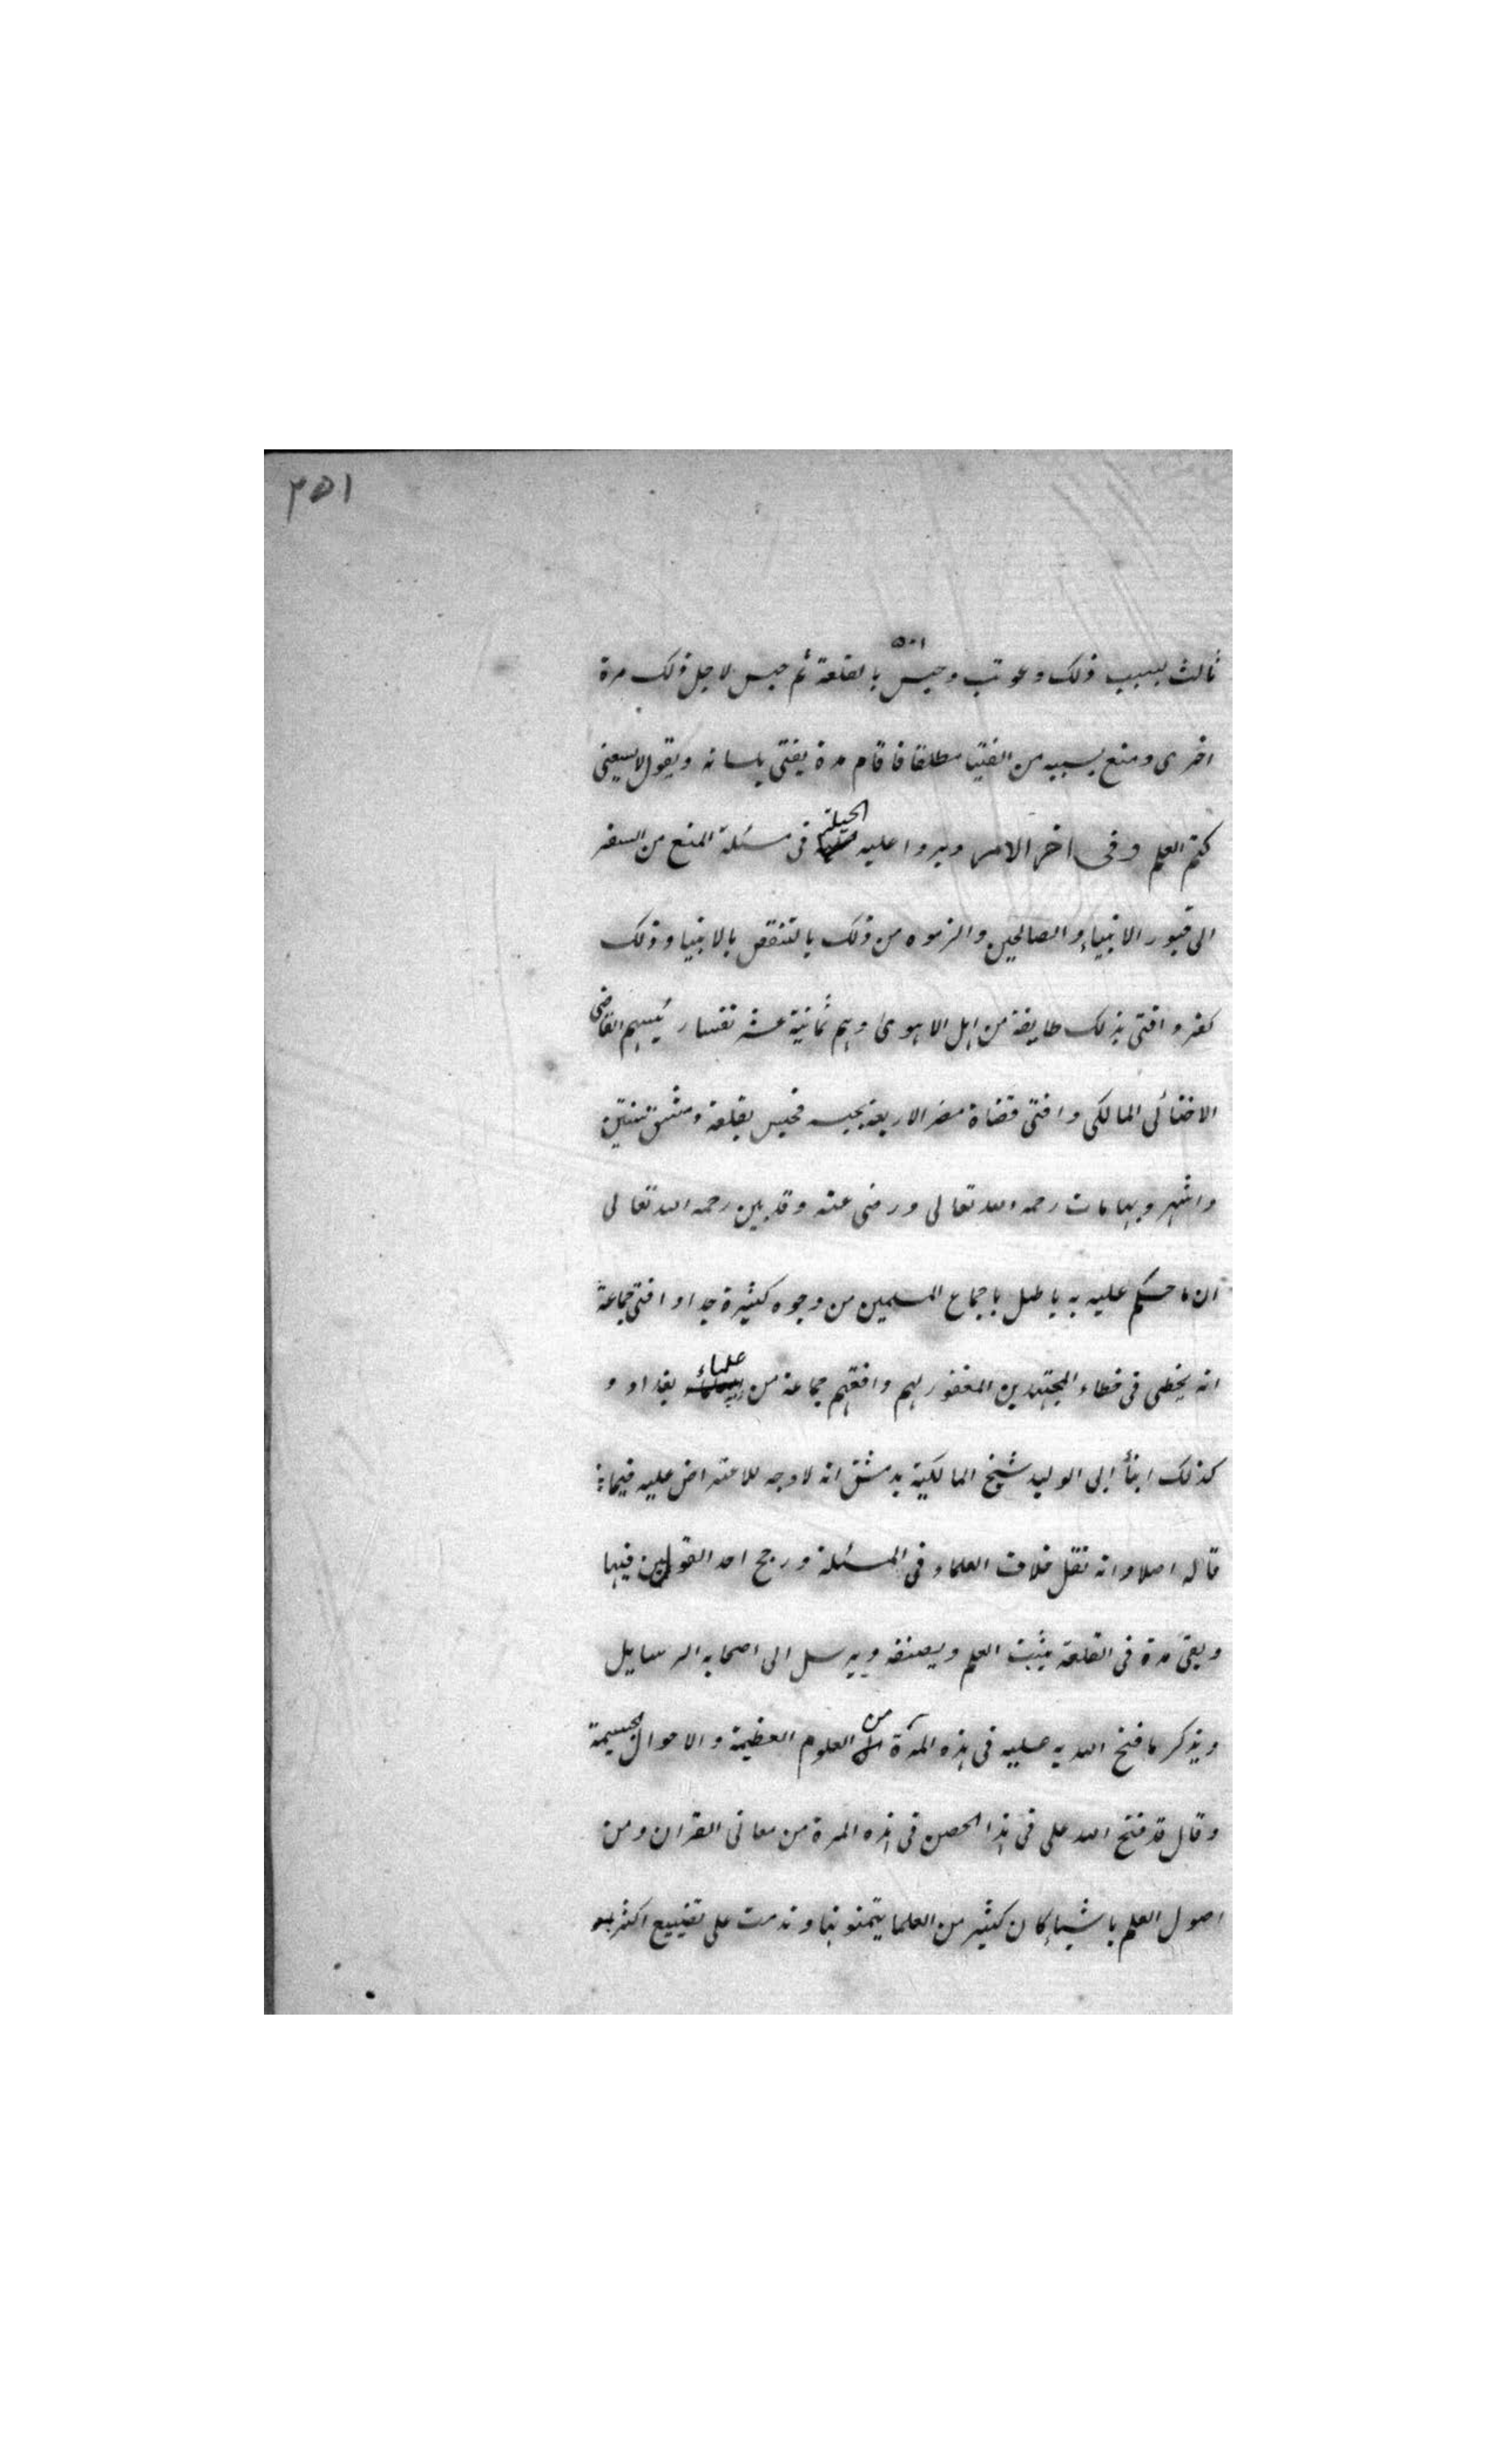 ٣٥١
ثالث بسبب ذلك وعوتب وحبس بالقلعة ثم حبس لاجل ذلك مرة
اخرى ومنع بسببه من الفتيا مطلقا فاقام مدة يفتى بلسانه ويقول لا يسعنى
كتم العلم وفى اخر الامر دبروا عليه الحيلة فى مسئلة المنع من السفر
الى قبور الانبياء والصالحين والزموه من ذلك بالتنقص بالانبيا وذلك
كفر وافتى بذلك طايفة من اهل الاهوى وهم ثمانية عشر نفسا رئيسهم القاضى
الاخنائى المالكى وافتى قضاة مصر الاربعة بحبسه فحبس بقلعة دمشق سنتين
واشهر وبها مات رحمه الله تعالى ورضى عنه وقد بين رحمه الله تعالى
ان ما حكم عليه به باطل باجماع المسلمين من وجوه كثيرة جدا وافتى جماعة
انه يخطى فى خطاء المجتهدين المغفور لهم وافقهم جماعة من علماء بغداد و
كذلك ابنا ابى الوليد شيخ المالكية بدمشق انه لا وجه للاعتراض عليه فيما
قاله اصلا وانه نقل خلاف العلماء فى المسئلة ورجح احد القولين فيها
وبقى مدة فى القلعة يثبت العلم ويصنفه ويرسل الى اصحابه الرسايل
ويذكر ما فتح الله به عليه فى هذه المرة من العلوم العظيمة والاحوال الجسيمة
وقال قد فتح الله على فى هذا الحصن فى هذه المرة من معانى القران ومن
اصول العلم باشياء كان كثير من العلما يتمنونها وندمت على تضييع اكثر